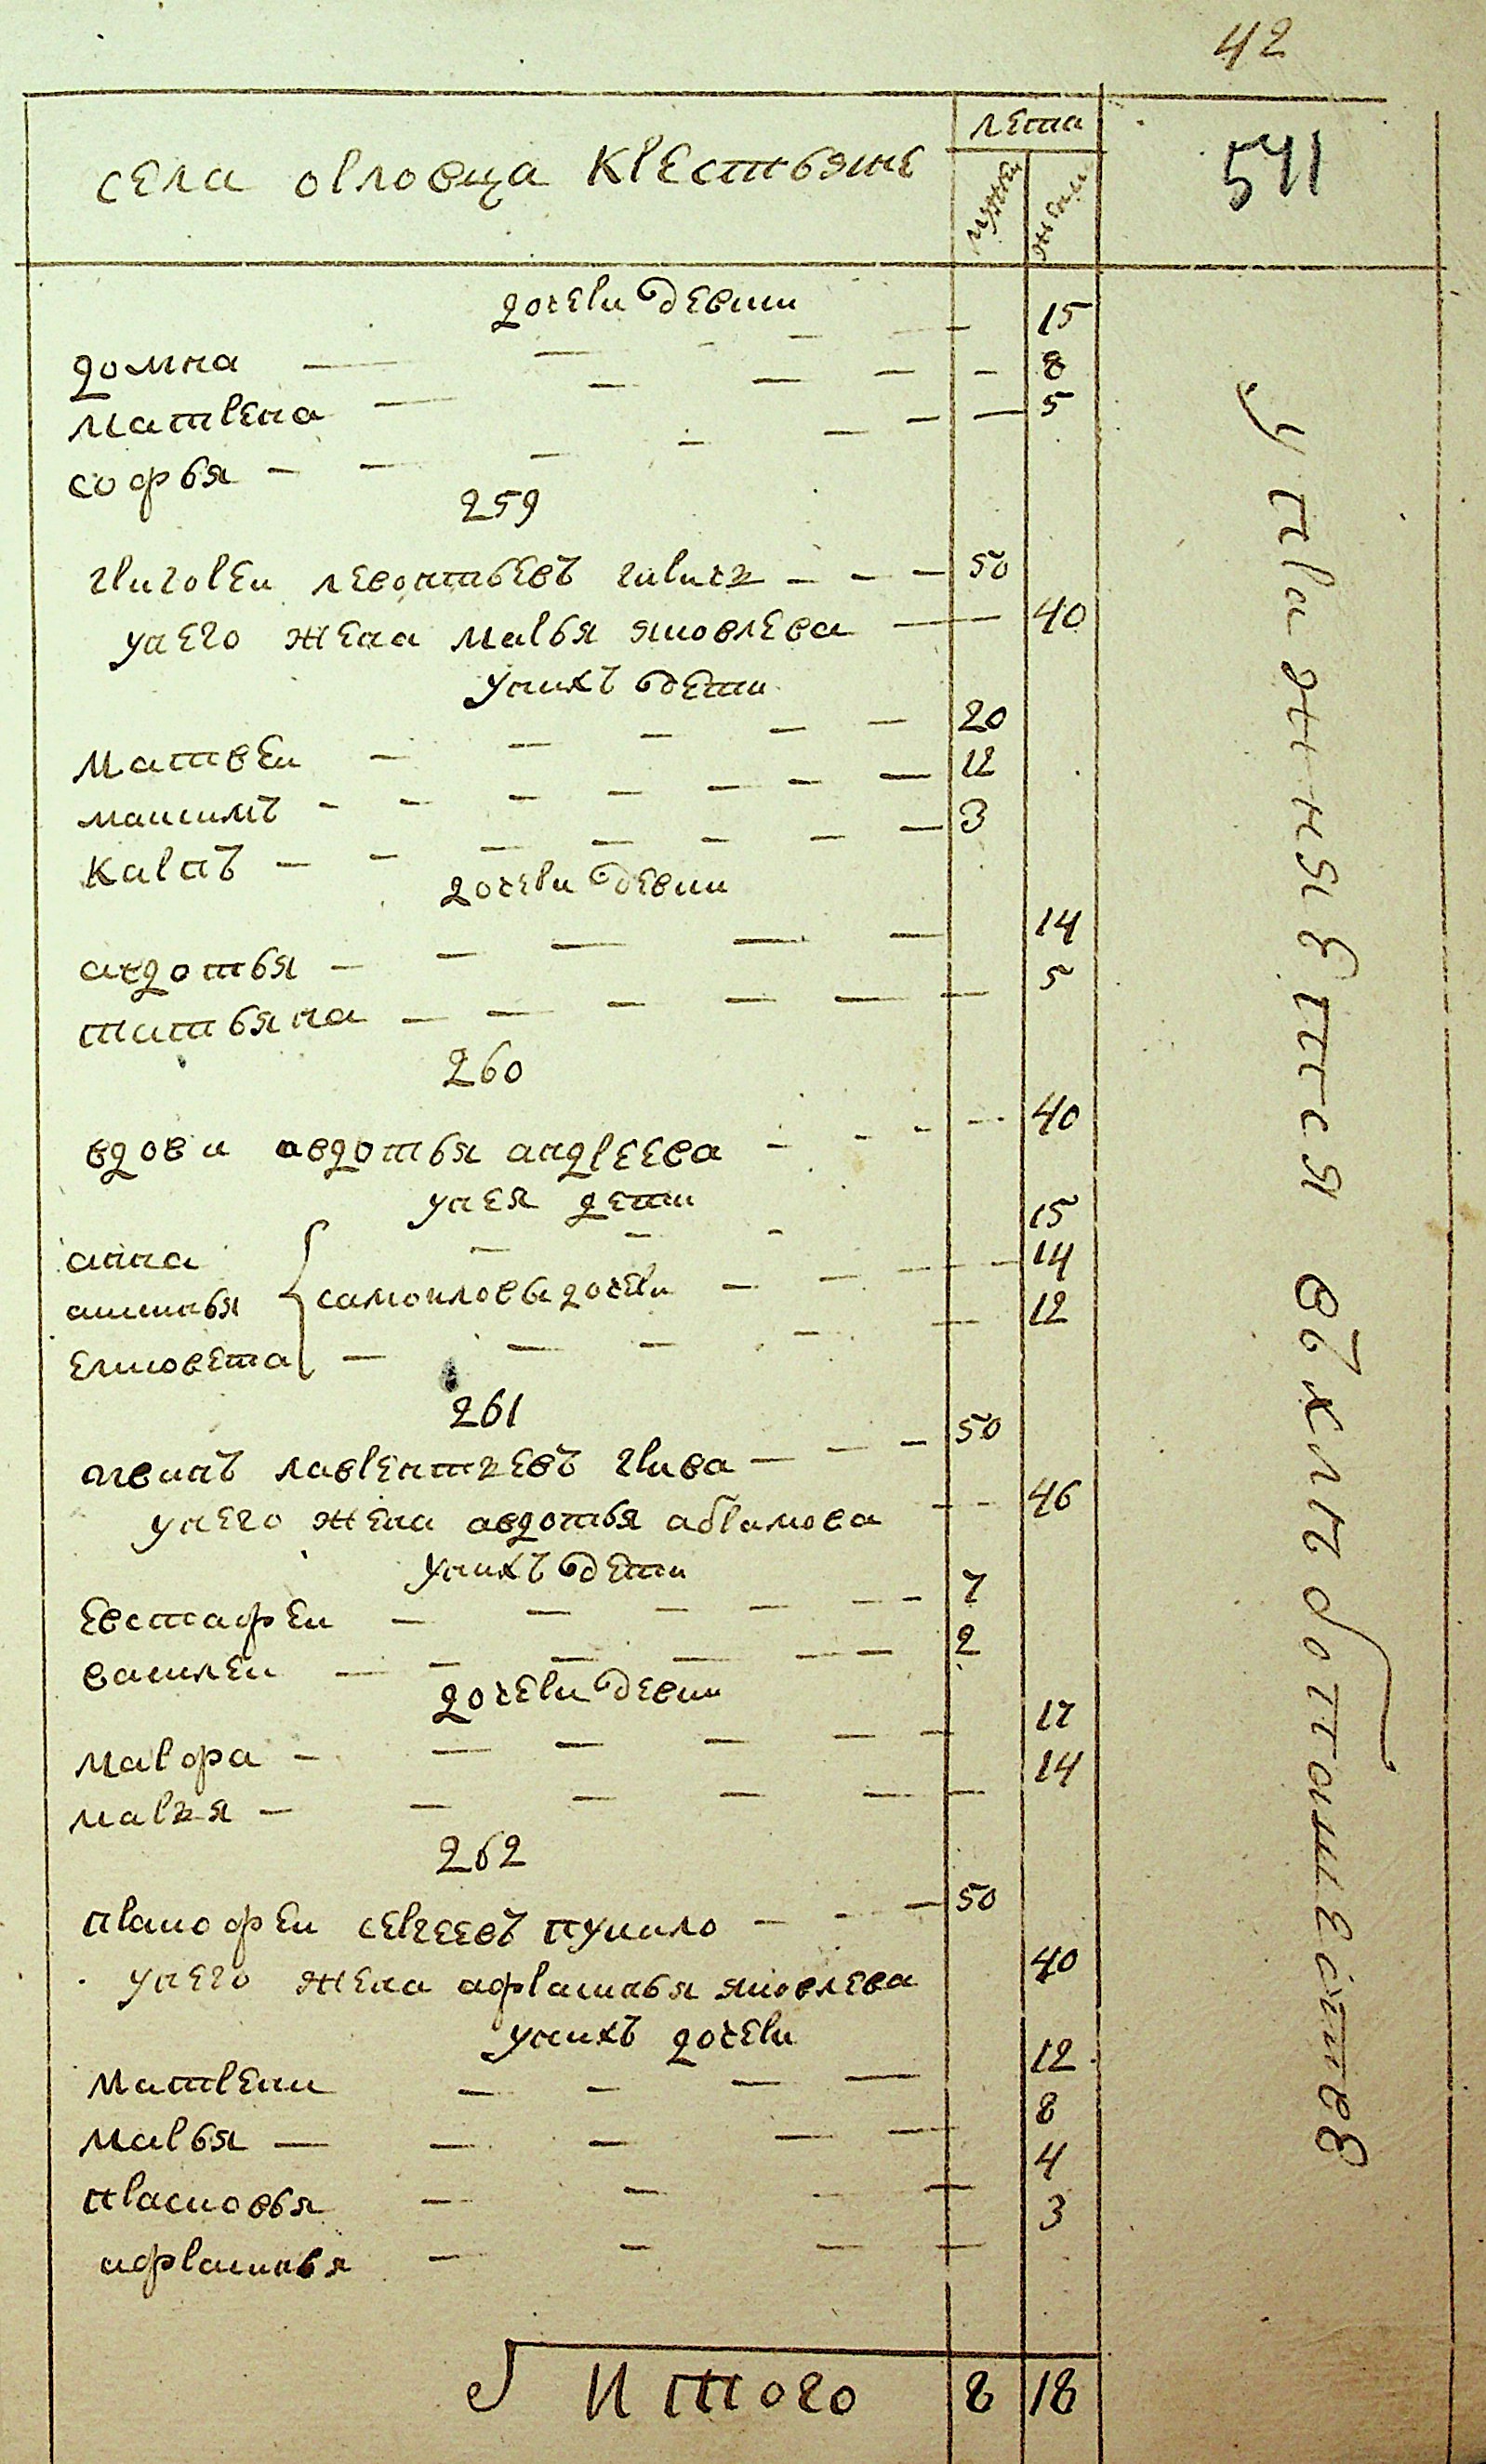 42
села орловца крестьяне
лета
мужеи
жени
541
дочери девки
домна 15
матрена 8
софья 5
259
григореи левонтьевъ гиричь 50
унего жена марья яковлева 40
унихъ дети
матвеи 20
максимъ 12
карпъ 3
дочери девки
авдотья 14
татьяна 5
260
вдова авдотья андреева 40
унея дети
анна 15
аксинья самоиловы дочери 14
елисовета 12
261
логвинъ лаврентьевъ грива 50
унего жена авдотья абрамова 46
унихъ дети
евстафеи 7
василеи 2
дочери девки
марфа 17
марья 14
262
пракофеи сергеевъ пукало 50
унего жена афрасинья яковлева 40
унихъ дочери
матрена 12
марья 8
прасковья 4
афрасинья 3
Итого 8 18
упражняетъся въхлибопашестве